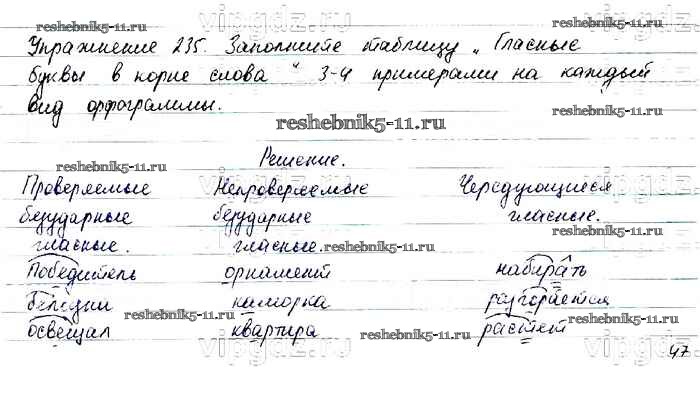 reshebnik5-11.ru reshebnik5-11.ru
vipgdz.ru
Упражнение 235. Заполните таблицу „Гласные
буквы в корне слова“ 3-4 примерами на каждый
вид орфограммы.
reshebnik5-11.ru
Решение.
reshebnik5-11.ru reshebnik5-11.ru
vipgdz.ru vipgdz.ru
Проверяемые Непроверяемые Чередующиеся
безударные безударные гласные.
гласные. гласные. reshebnik5-11.ru
Победитель орнамент набирать
каморка разгорается
reshebnik5-11.ru reshebnik5-11.ru
освещал квартира растет
reshebnik5-11.ru reshebnik5-11.ru
vipgdz.ru vipgdz.ru
47